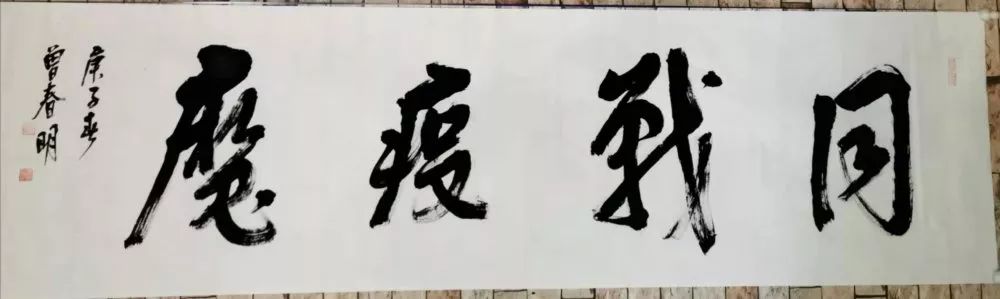 同戰疫魔
庚子春
曾春明